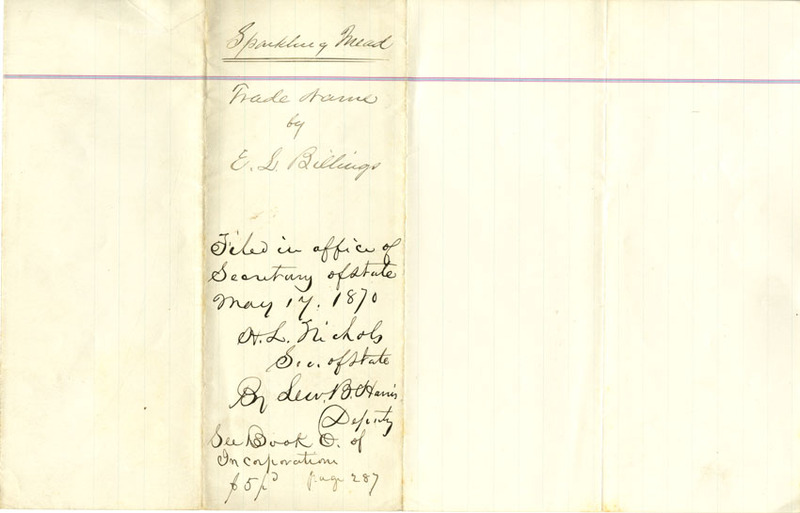 Sparkling Mead
Trade Name
by
E. L. Billings
Filed in office of
Secretary of State
May 17. 1870
H. L. Nichols
Sec. of State
By Lew. B. Harris
Deputy
See Book O. of
Incorporations
$5 pd page 287